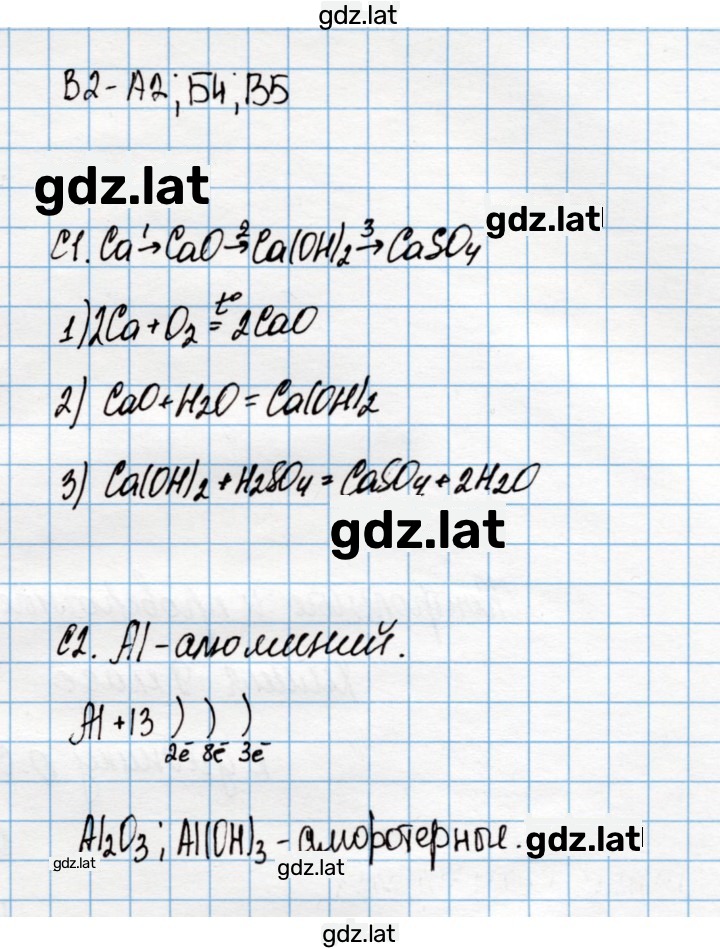 gdz.lat
В2-А2; Б4; В5
gdz.lat
gdz.lat
С1. Ca →¹ CaO →² Ca(OH)₂ →³ CaSO₄
1) 2Ca + O₂ =t° 2CaO
2) CaO + H2O = Ca(OH)₂
3) Ca(OH)₂ + H2SO₄ = CaSO₄ + 2H2O
gdz.lat
С2. Al - алюминий.
Al +13 ) ) )
2ē 8ē 3ē
Al₂O₃; Al(OH)₃ - аморотерные.
gdz.lat
gdz.lat
gdz.lat
gdz.lat